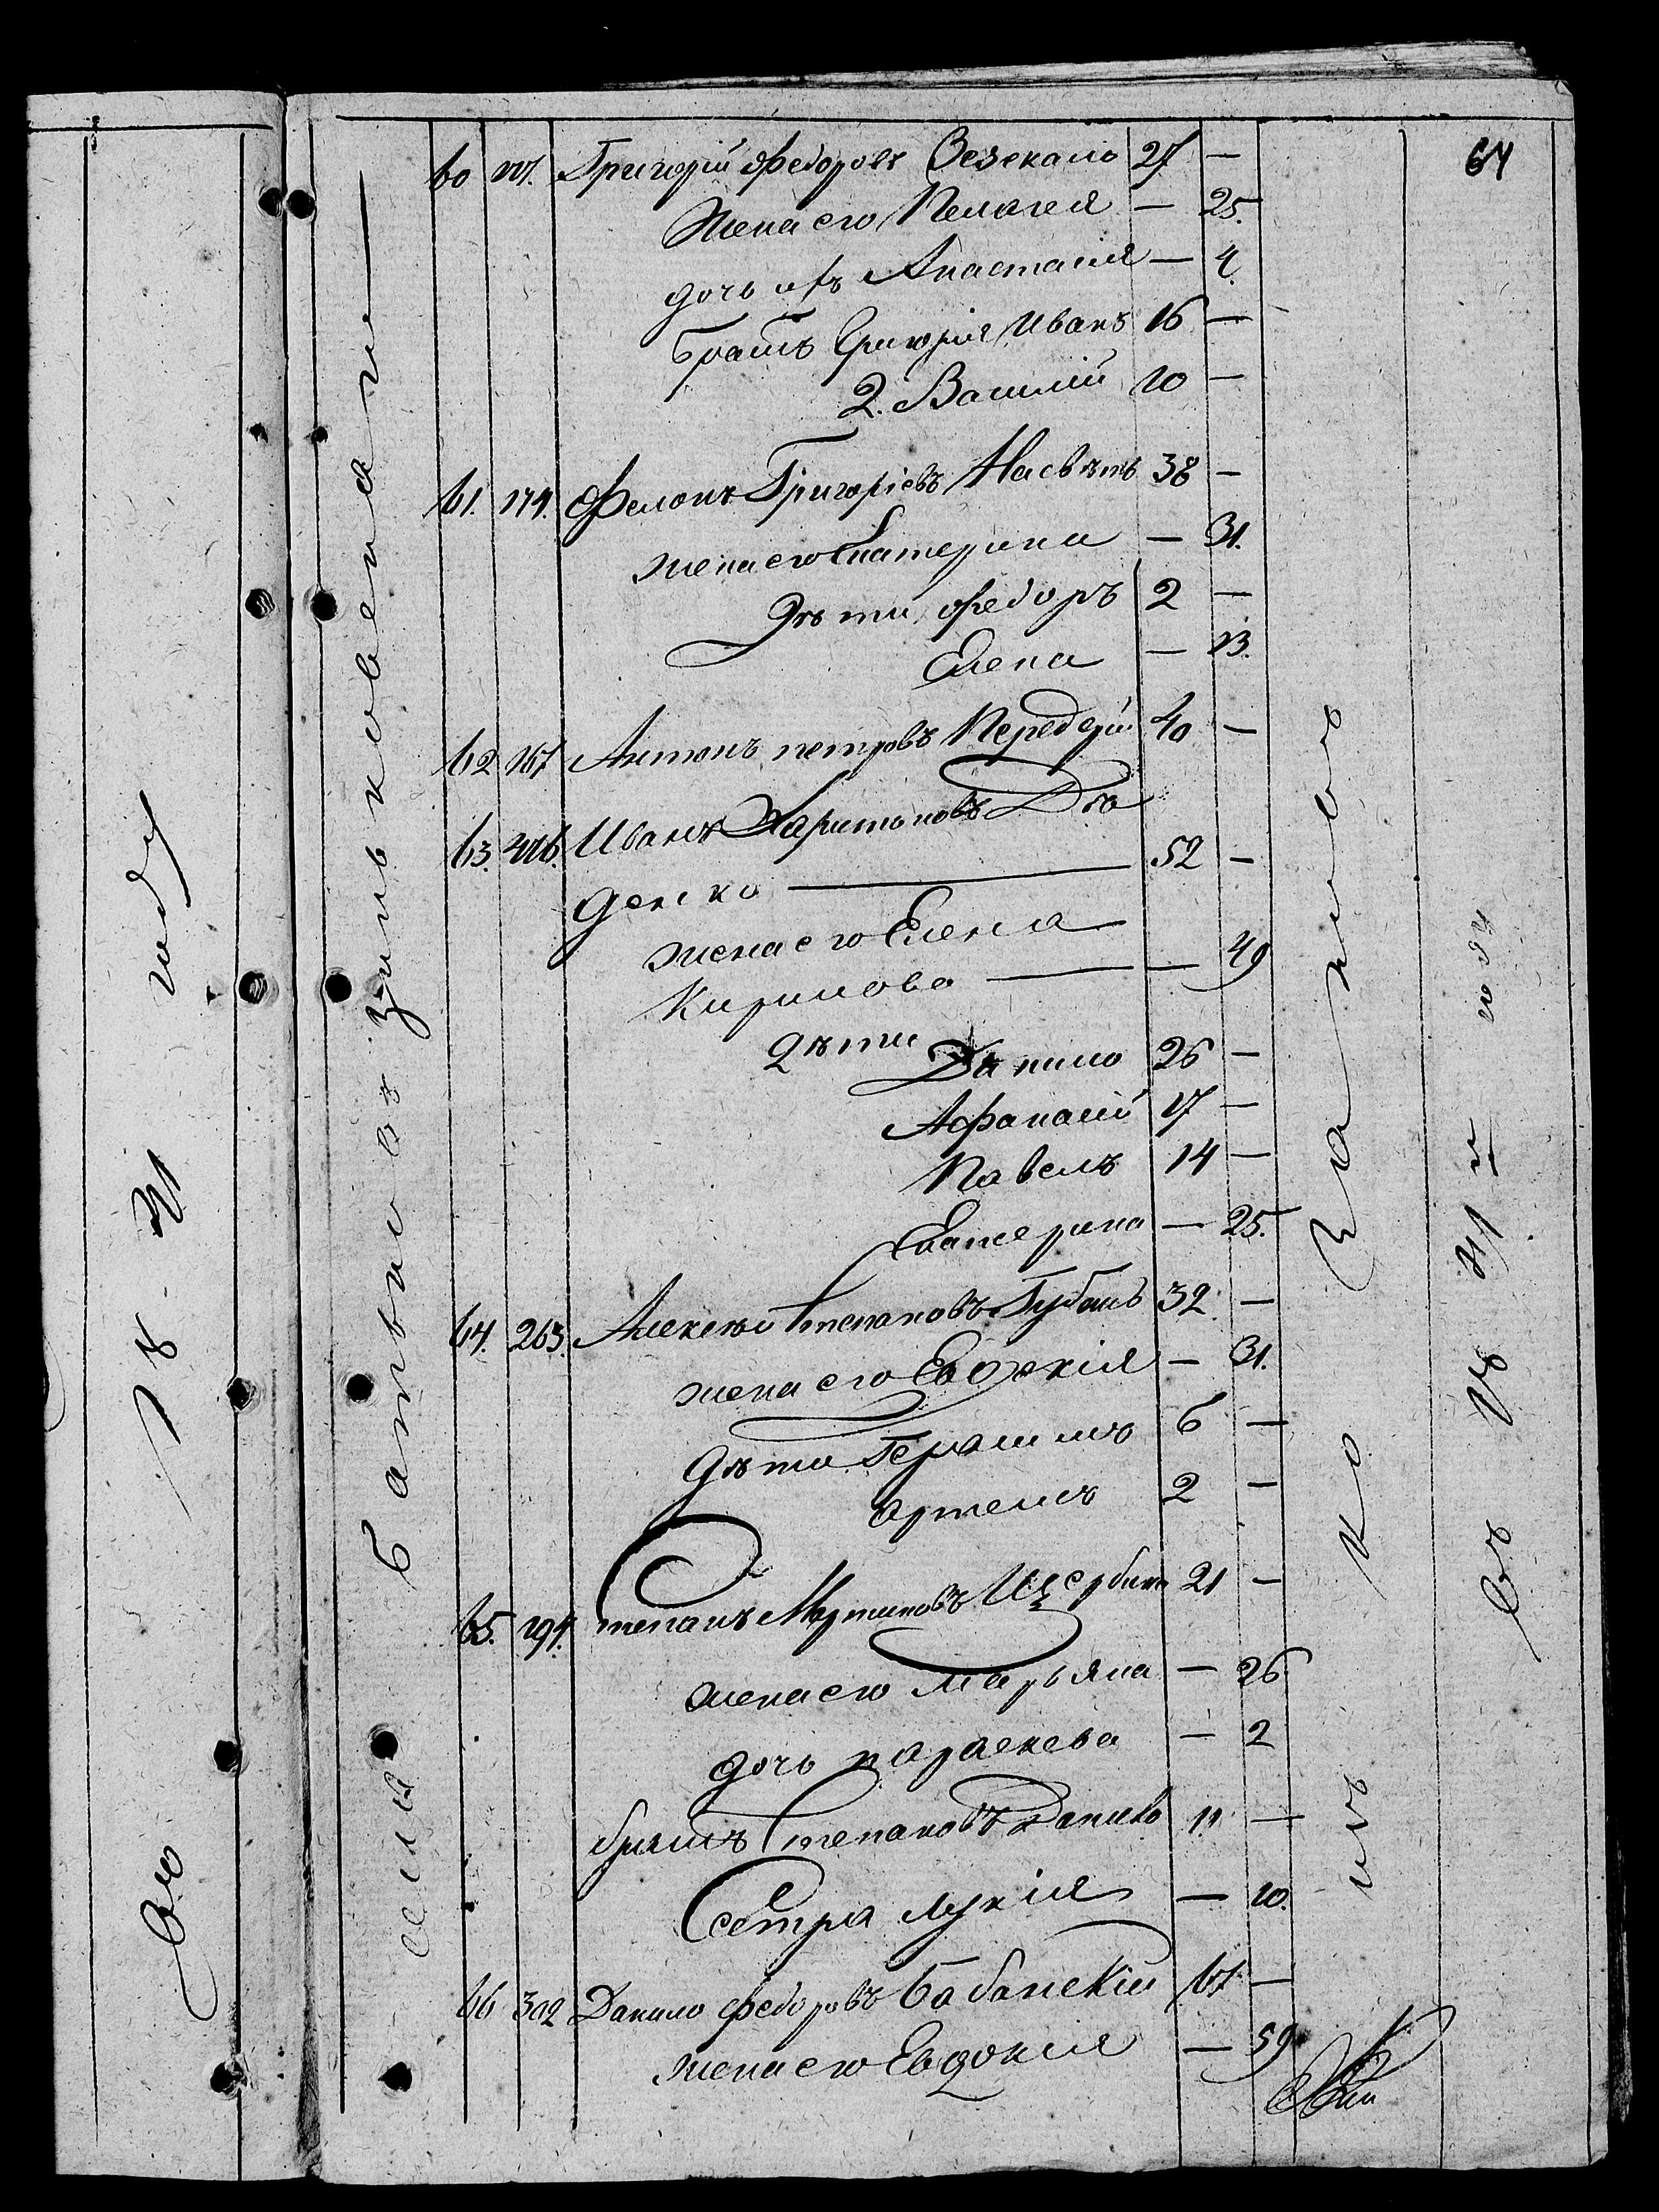 64
60 Григорій Федоровъ 27 —
Жена его Пелагея — 25.
дочь ихъ Анастасія — 4
братъ Григорія Иванъ 16 —
2. Василій 10 —
61. 174. Григоріевъ 38 —
жена его Екатерина — 31.
Дѣти Федоръ 2 —
Елена — 13.
62 167 Антонъ петровъ Передерій 40 —
63. Иванъ Харитоновъ Дя
денко — 52 —
жена его Елена
Кирилова — — 49
дѣти Данило 26 —
Афанасій 17 —
Павелъ 14 —
Екатерина — 25.
64. 263. Алексѣй Степановъ Губань 32 —
жена его Евдокія — 31.
дѣти Герасимъ 6 —
Артемъ 2 —
65. 194. Степанъ Мартиновъ Щербина 21 —
жена его Марьяна — 26
дочь параскева — 2
братъ Степановъ Данило 11 —
Сестра Лукія — 10.
66 302 Данило Федоровъ Бабанскій 67 —
жена его Евдокія — 59
селѣ
въ 18 31 м году
въ 18 31 году